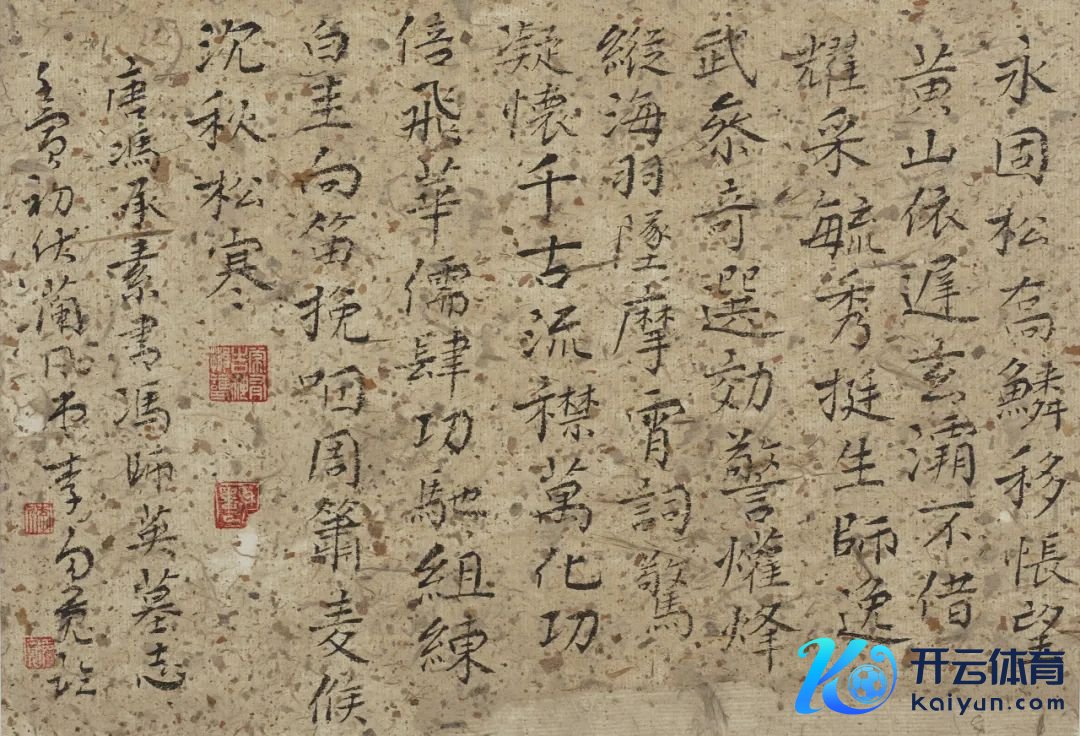 永固松高鱗移悵望
黄山依遲玄灞不借
耀采毓秀挺生師逸
武叅奇選効警爟烽
縱海羽墜摩霄詞驚
凝懷千古流襟萬化功
倍飛華儒肆功馳組練
白圭向笛挽咽周簫麦候
沈秋松寒
唐馮承素書馮師英墓志
壬寅初伏蘭風
开云体育
kaiyun.com